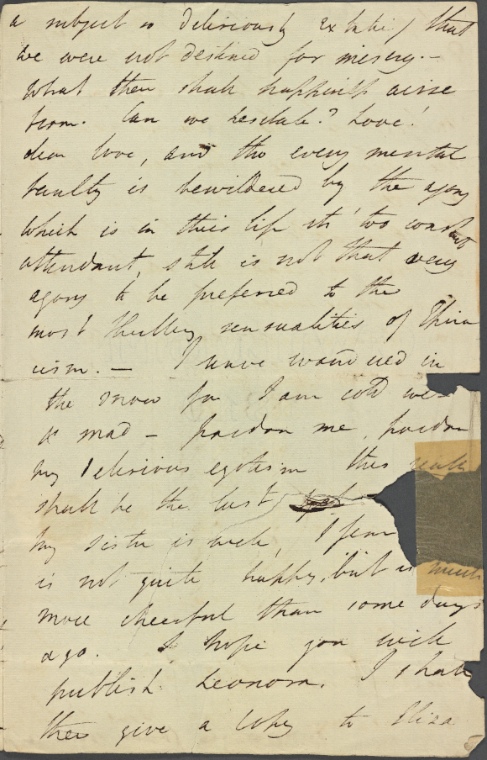 a subject so deliriously extatic, that
we were not destined for misery.—
What then shall happiness arise
from. Can we hesitate? Love!
dear love, and tho every mental
faculty is bewildered by the agony
which is in this life its too constant
attendant, still is not that very
agony to be preferred to the
most thrilling sensualities of Epicu
rism.— I have wandered in
the snow for I am cold wet
& mad — pardon me, pardon
my delirious egotism this really
shall be the last
My sister is well, I fear
is not quite happy, but is much
more cheerful than some days
ago. I hope you will
publish Leonora. I shall
then give a Copy to Eliza